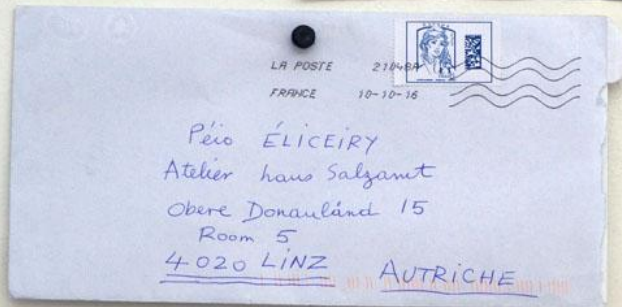 LA POSTE 21048A
FRANCE 10-10-16
Péio ÉLICEIRY
Atelier haus Salzamt
Obere Donauländ 15
Room 5
4020 LINZ AUTRICHE